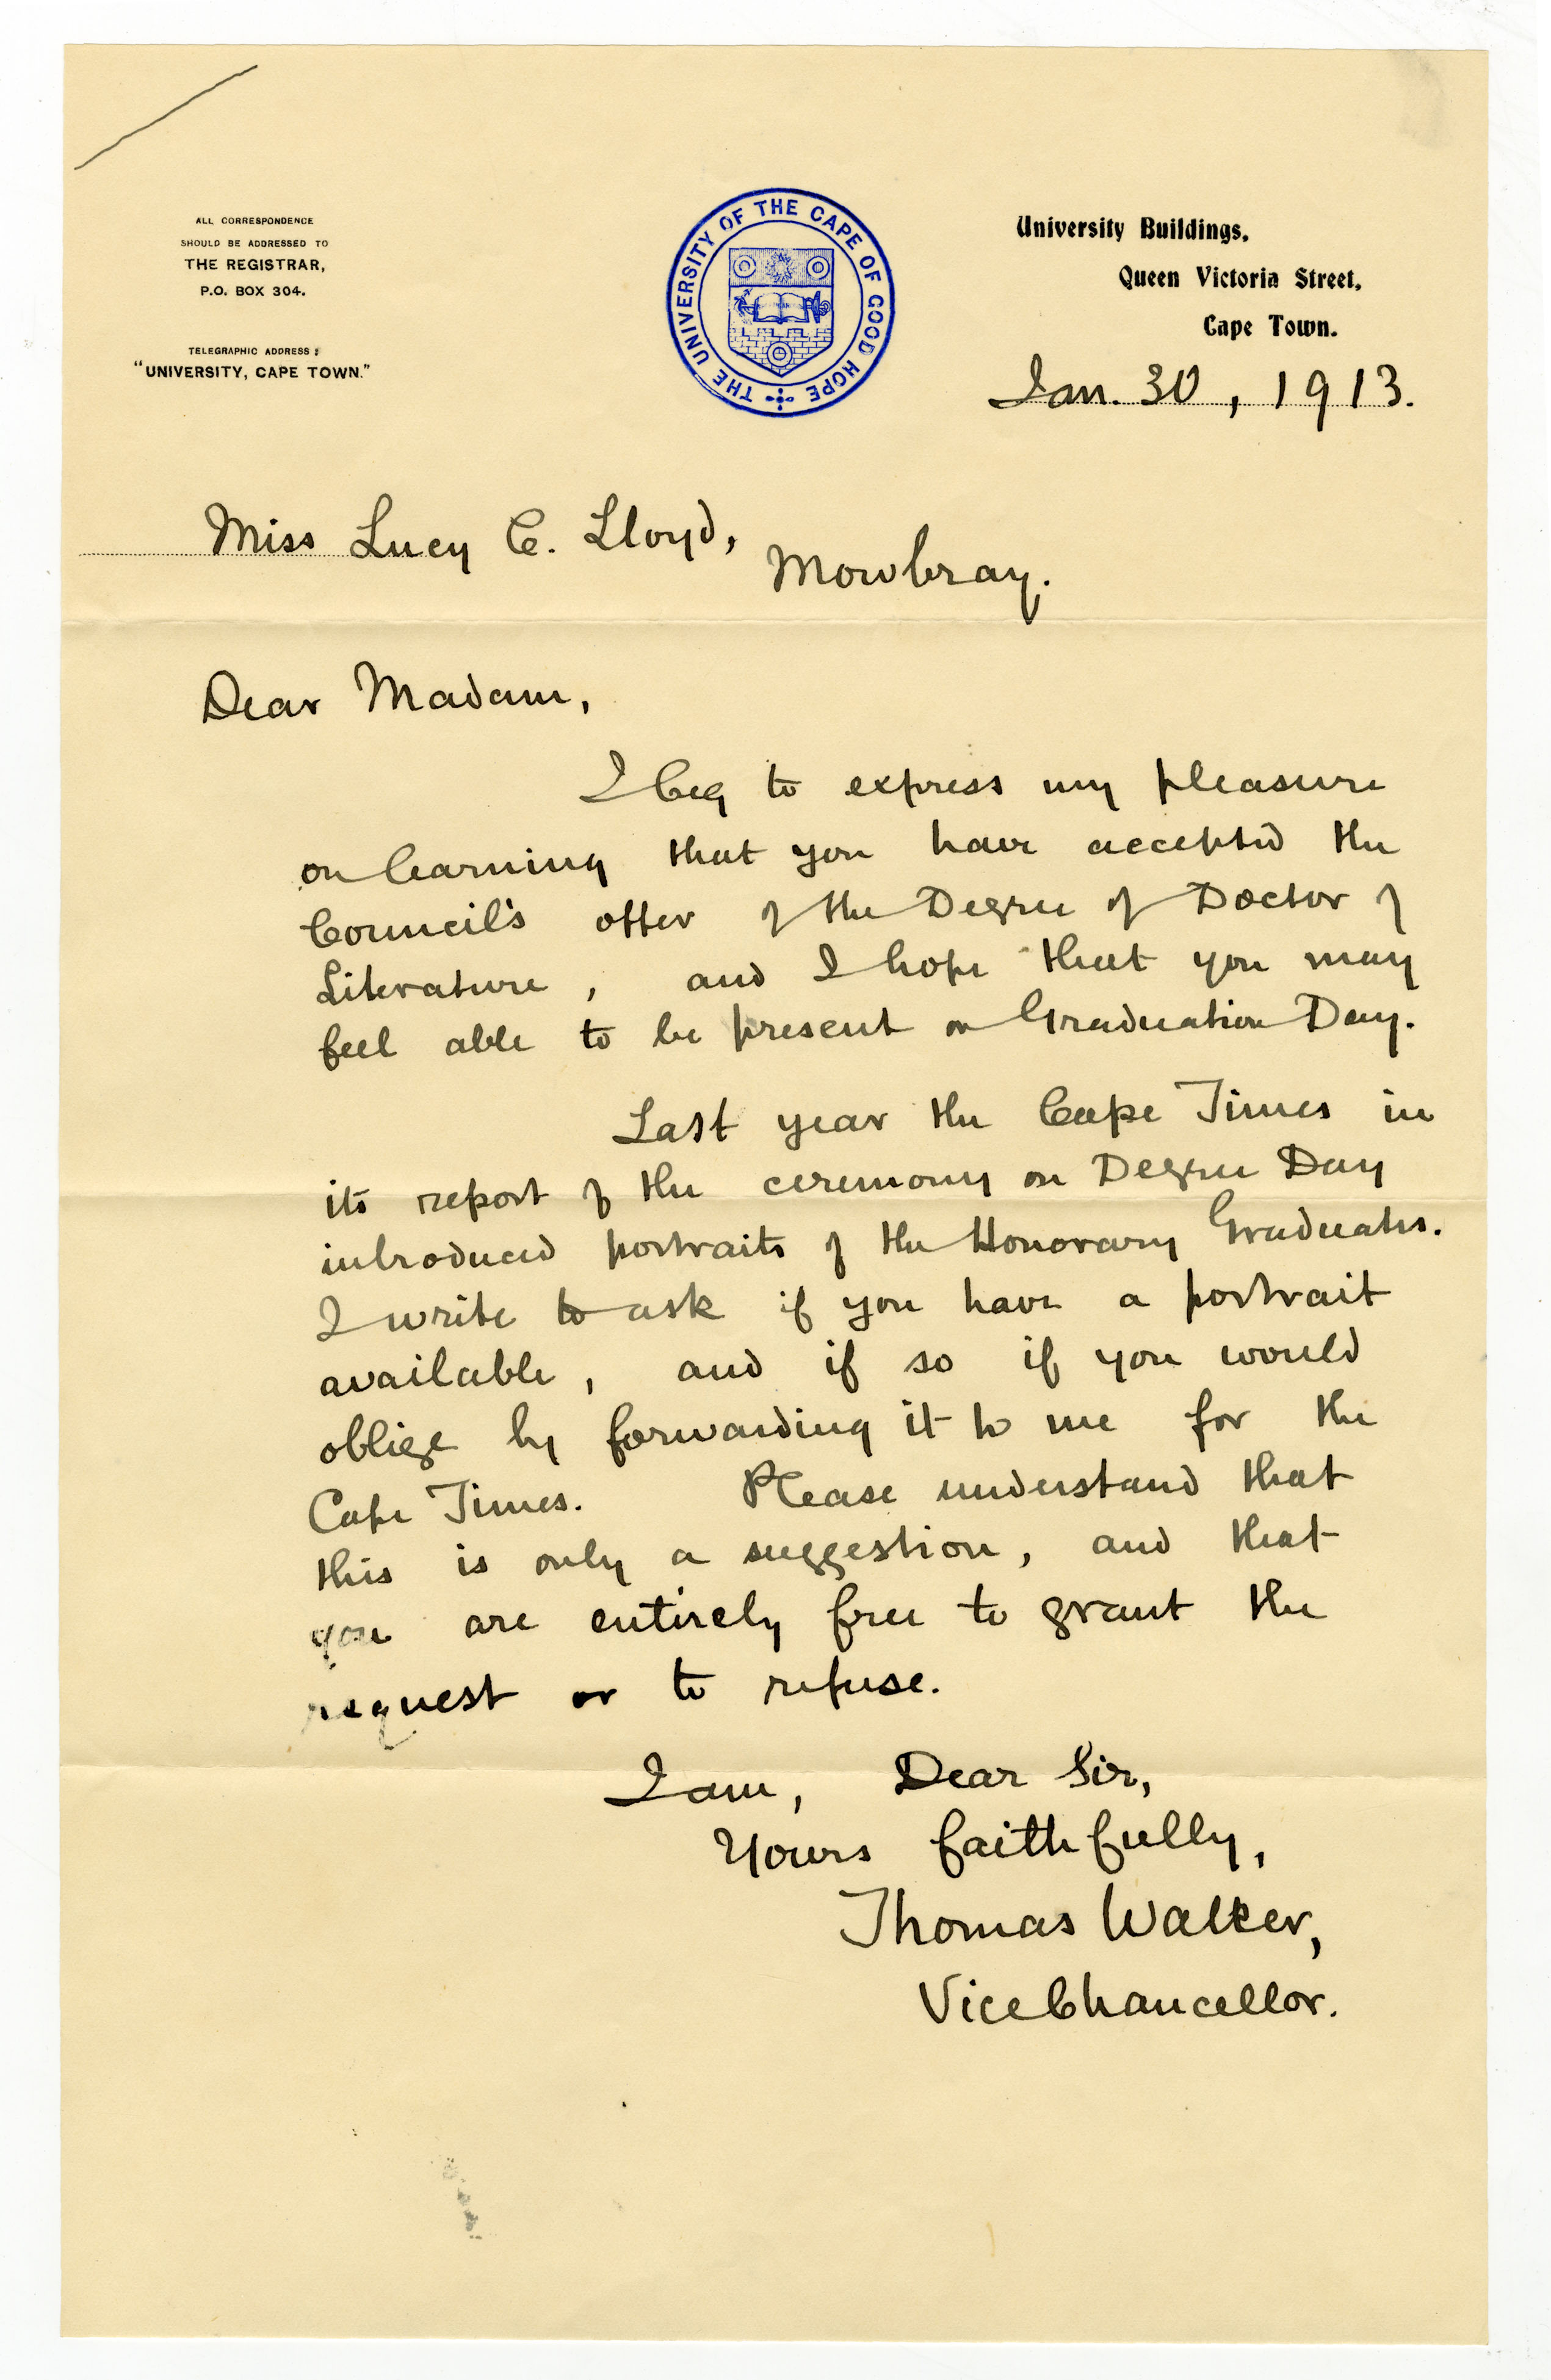 ALL CORRESPONDENCE
SHOULD BE ADDRESSED TO
THE REGISTRAR,
P.O. BOX 304.
TELEGRAPHIC ADDRESS:
"UNIVERSITY, CAPE TOWN."
THE UNIVERSITY OF THE CAPE OF GOOD HOPE
University Buildings,
Queen Victoria Street,
Cape Town.
Jan. 30, 1913.
Miss Lucy C. Lloyd,
Mowbray.
Dear Madam,
I beg to express my pleasure
on learning that you have accepted the
Council's offer of the Degree of Doctor of
Literature, and I hope that you may
feel able to be present on Graduation Day.
Last year the Cape Times in
its report of the ceremony on Degree Day
introduced portraits of the Honorary Graduates.
I write to ask if you have a portrait
available, and if so if you would
oblige by forwarding it to me for the
Cape Times. Please understand that
this is only a suggestion, and that
you are entirely free to grant the
request or to refuse.
I am, Dear Sir,
Yours faithfully,
Thomas Walker,
Vice Chancellor.